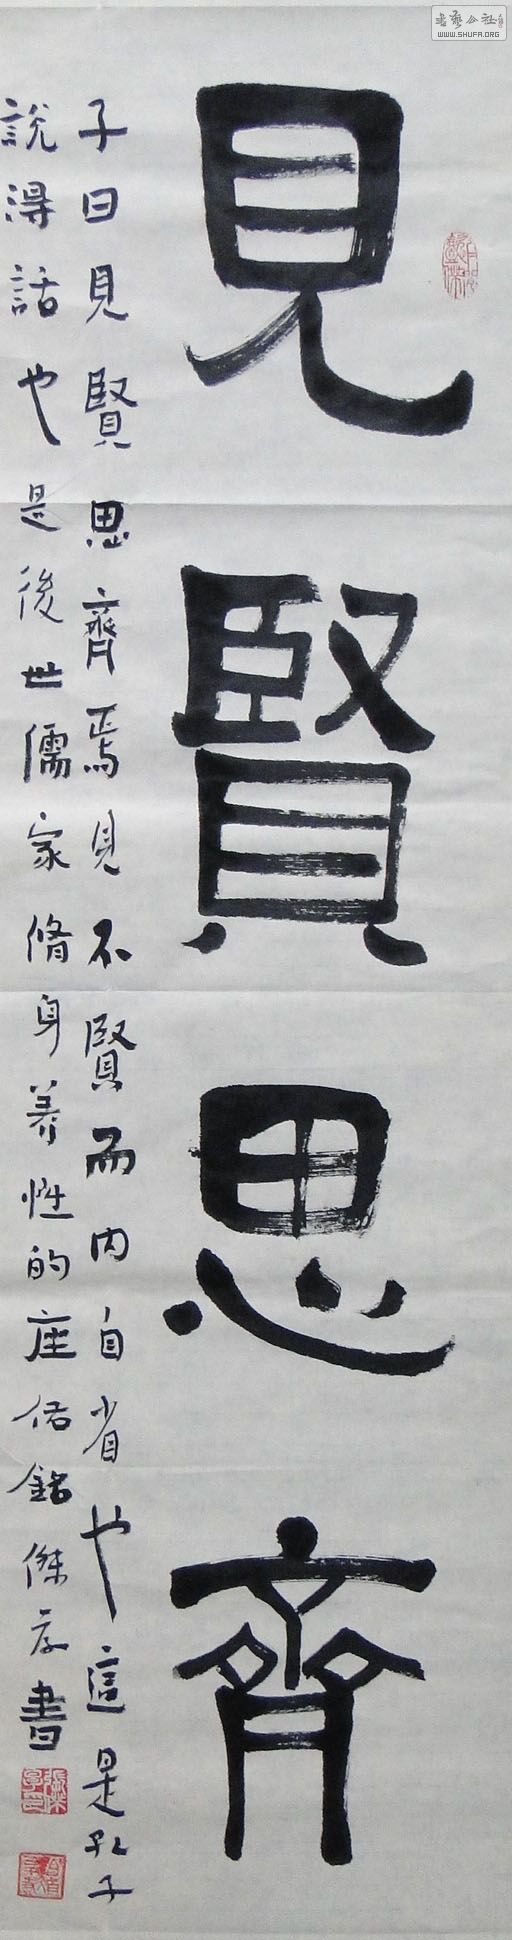 見賢思齊
子曰見賢思齊焉見不賢而內自省也這是孔子
說得話也是後世儒家脩身養性的座佑銘傑存書
書藝公社
WWW.SHUFA.ORG